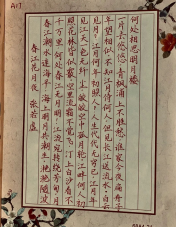 春江花月夜 张若虚
春江潮水连海平 海上明月共潮生 滟滟随波
千万里 何处春江无月明 江流宛转绕芳甸 月
照花林皆似霰 空里流霜不觉飞 汀上白沙看不
见 江天一色无纤尘 皎皎空中孤月轮 江畔何人初
见月 江月何年初照人 人生代代无穷已 江月年
年望相似 不知江月待何人 但见长江送流水 白云
一片去悠悠 青枫浦上不胜愁 谁家今夜扁舟子
何处相思明月楼